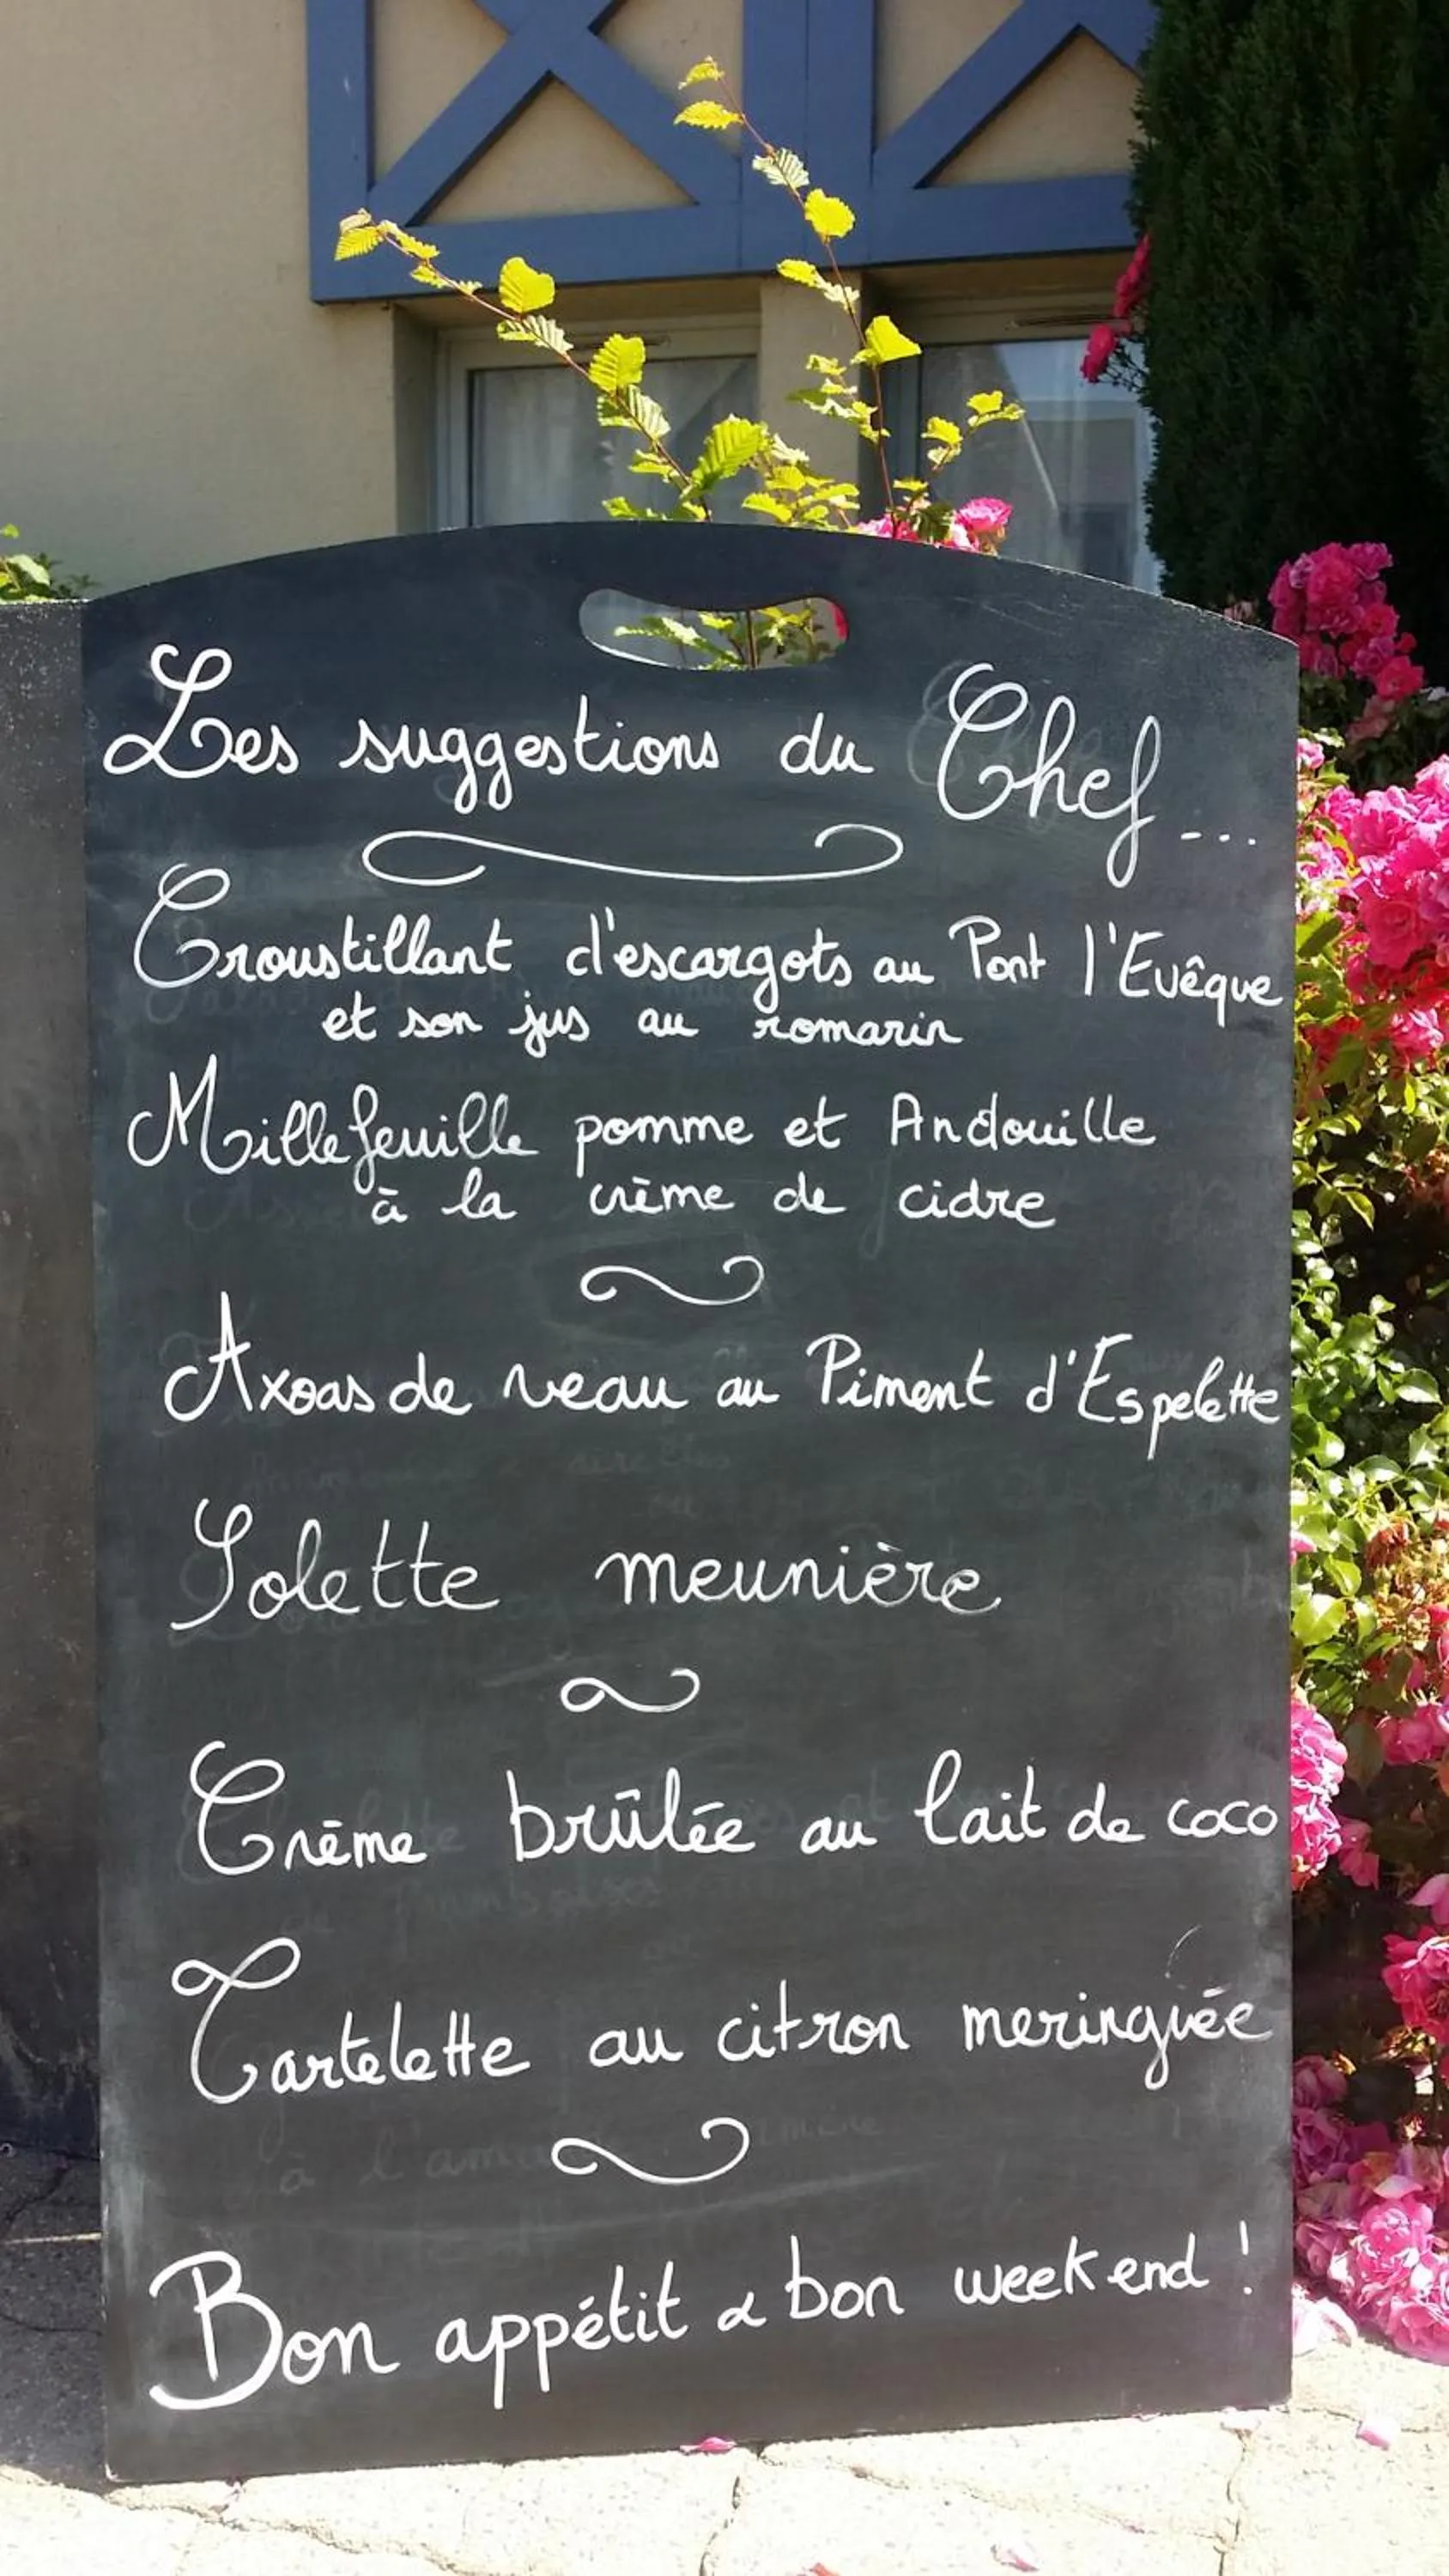 Les suggestions du Chef...
Croustillant d'escargots au Pont l'Evêque
et son jus au romarin
Millefeuille pomme et Andouille
à la crème de cidre
Axoas de veau au Piment d'Espelette
Solette meunière
Crème brûlée au lait de coco
Tartelette au citron meringuée
Bon appétit & bon week end !